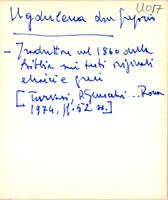 U017
Ugdulena don Gregorio
- Traduttore nel 1860 della
Bibbia sui testi originali
ebraici e greci
[Turvasi, R. Roma
1974, pp. 52 ss.]